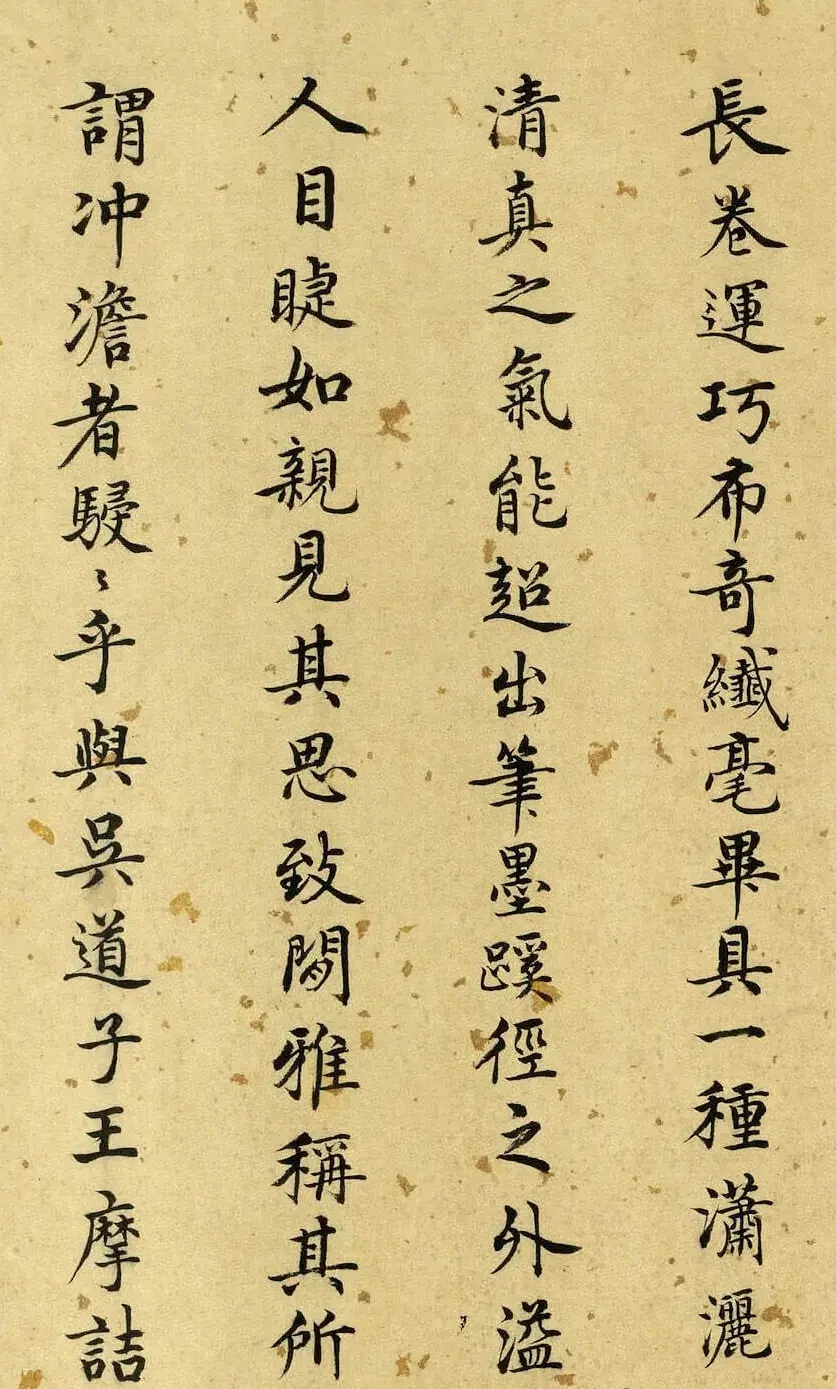 長卷運巧布奇纖毫畢具一種瀟灑
清真之氣能超出筆墨蹊徑之外溢
人目睫如親見其思致閒雅稱其所
謂冲澹者駸〻乎與吳道子王摩詰